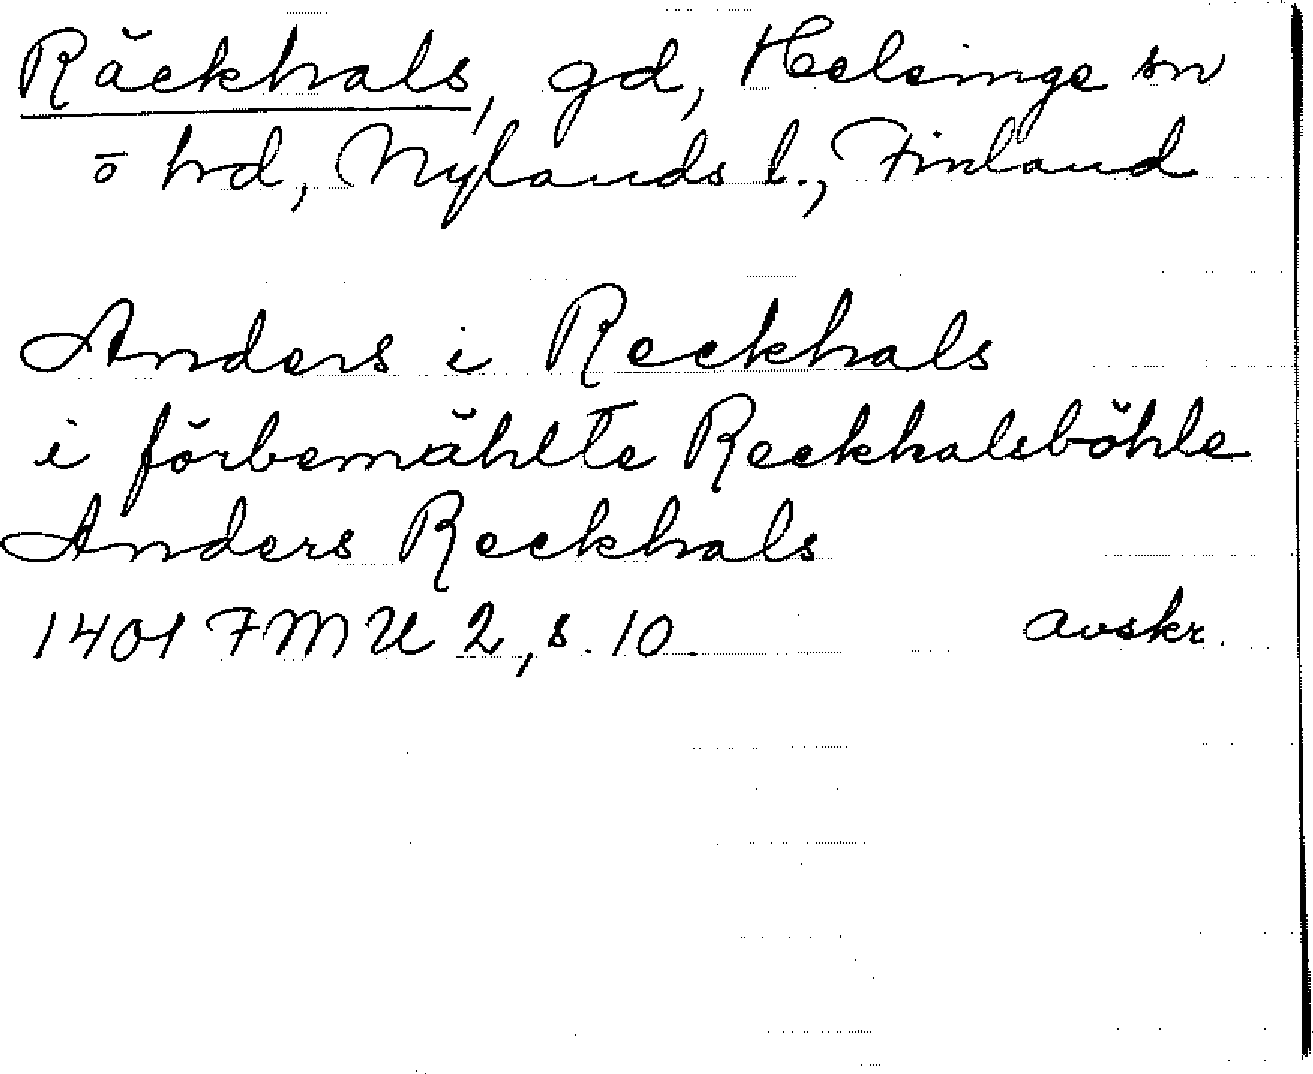 Räckhals, gd, Helsinge sn
o hd, Nylands l., Finland
Anders i Reckhals
i förbemählte Reckhalsböhle
Anders Reckhals
1401 FMU 2, s. 10. avskr.